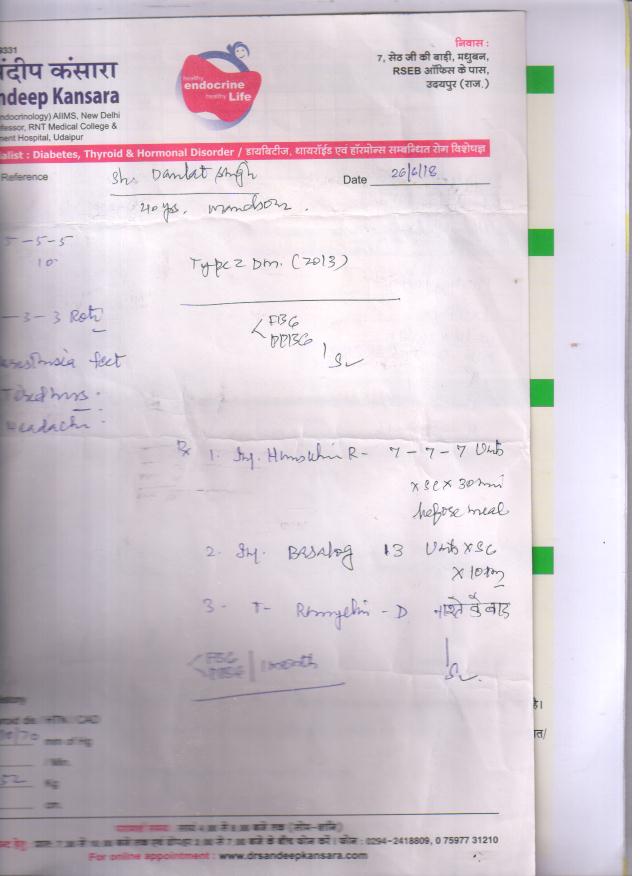 9331
ंदीप कंसारा
ndeep Kansara
ndocrinology) AIIMS, New Delhi
fessor, RNT Medical College &
ment Hospital, Udaipur
healthy
endocrine
healthy Life
निवास :
7, सेठ जी की बाड़ी, मधुबन,
RSEB ऑफिस के पास,
उदयपुर (राज.)
ialist : Diabetes, Thyroid & Hormonal Disorder / डायबिटीज, थायरॉईड एवं हॉरमोन्स सम्बन्धित रोग विशेषज्ञ
Reference
Sh. Daulat Singh
Date 26/6/18
40 yrs. mandsor.
5-5-5
10
Type 2 Dm. (2013)
-3-3 Roti
FBG
PPBG
feet
Tiredness.
Headache.
Rx 1. Inj. Humsulin R- 7-7-7 Units
x SC x 30 min
before meal
2. Inj. BASALOG 13 Units x SC
x 10 pm
3- T- - D नाश्ते के बाद
FBG
PPBG 1 month
istory
yroid dis / HTN / CAD
/70 mm of Hg
/ Min.
52 Kg
cm.
है।
परामर्श समय : सायं 4.00 से 8.00 बजे तक (सोम-शनि)
प्रातः 7.30 से 10.00 बजे तक एवं दोपहर 2.00 से 7.00 बजे के बीच फोन करें । फोन : 0294-2418809, 0 75977 31210
For online appointment : www.drsandeepkansara.com